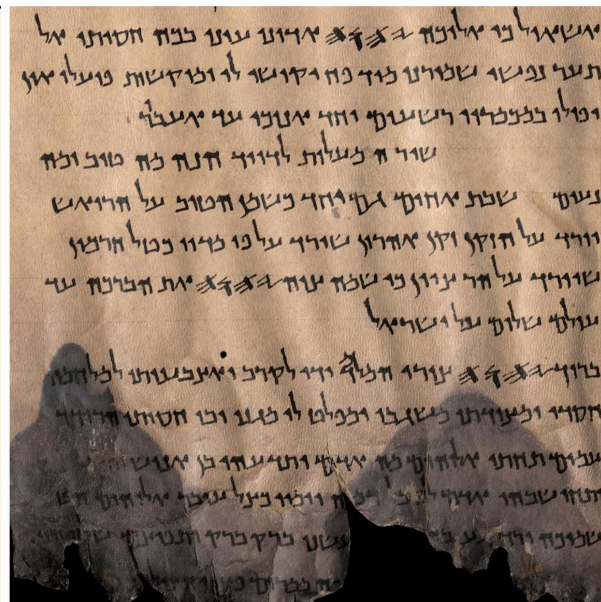 שאול כי אליכה 𐤉𐤄𐤅𐤄 אדוני עיני בכה חסיתי אל
תער נפשי שמורני מיד פח יקושו לי ומוקשות פועלי און
יפולו במכמריו רשעים יחד אנוכי עד אעבור
שיר המעלות לדויד הנה מה טוב ומה
נעים שבת אחים גם יחד כשמן הטוב על הרואש
יורד על הזקן זקן אהרון שירד על פי מדיו כטל חרמון
שיורד על הר ציון כי שמה צוה 𐤉𐤄𐤅𐤄 את הברכה עד
עולם שלום על ישראל
ברוך 𐤉𐤄𐤅𐤄 צורי המלמד ידי לקרב ואצבעותי למלחמה
חסדי ומצודתי משגבי ומפלט לי מגני ובו חסיתי הרודד
עמים תחתי אלוהים מה אדם ותדעהו בן אנוש
אדם דמה וימיו כצל עובר אלוהים
שמיכה ברוק ברק